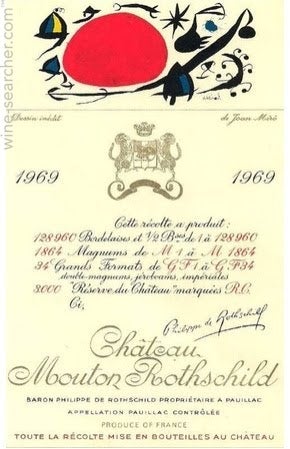 wine-searcher.com
Dessin inédit de Joan Miró
1969 1969
Cette récolte a produit :
128960 Bordelaises et ½ Bses de 1 à 128960
1864 Magnums de M 1 à M 1864
34 Grands Formats de G F 1 à G F 34
double-magnums, jéroboams, impériales
3000 "Réserve du Château" marquées R.C.
Ci,
Philippe de Rothschild
Château
Mouton Rothschild
BARON PHILIPPE DE ROTHSCHILD PROPRIÉTAIRE A PAUILLAC
APPELLATION PAUILLAC CONTRÔLÉE
PRODUCE OF FRANCE
TOUTE LA RÉCOLTE MISE EN BOUTEILLES AU CHÂTEAU